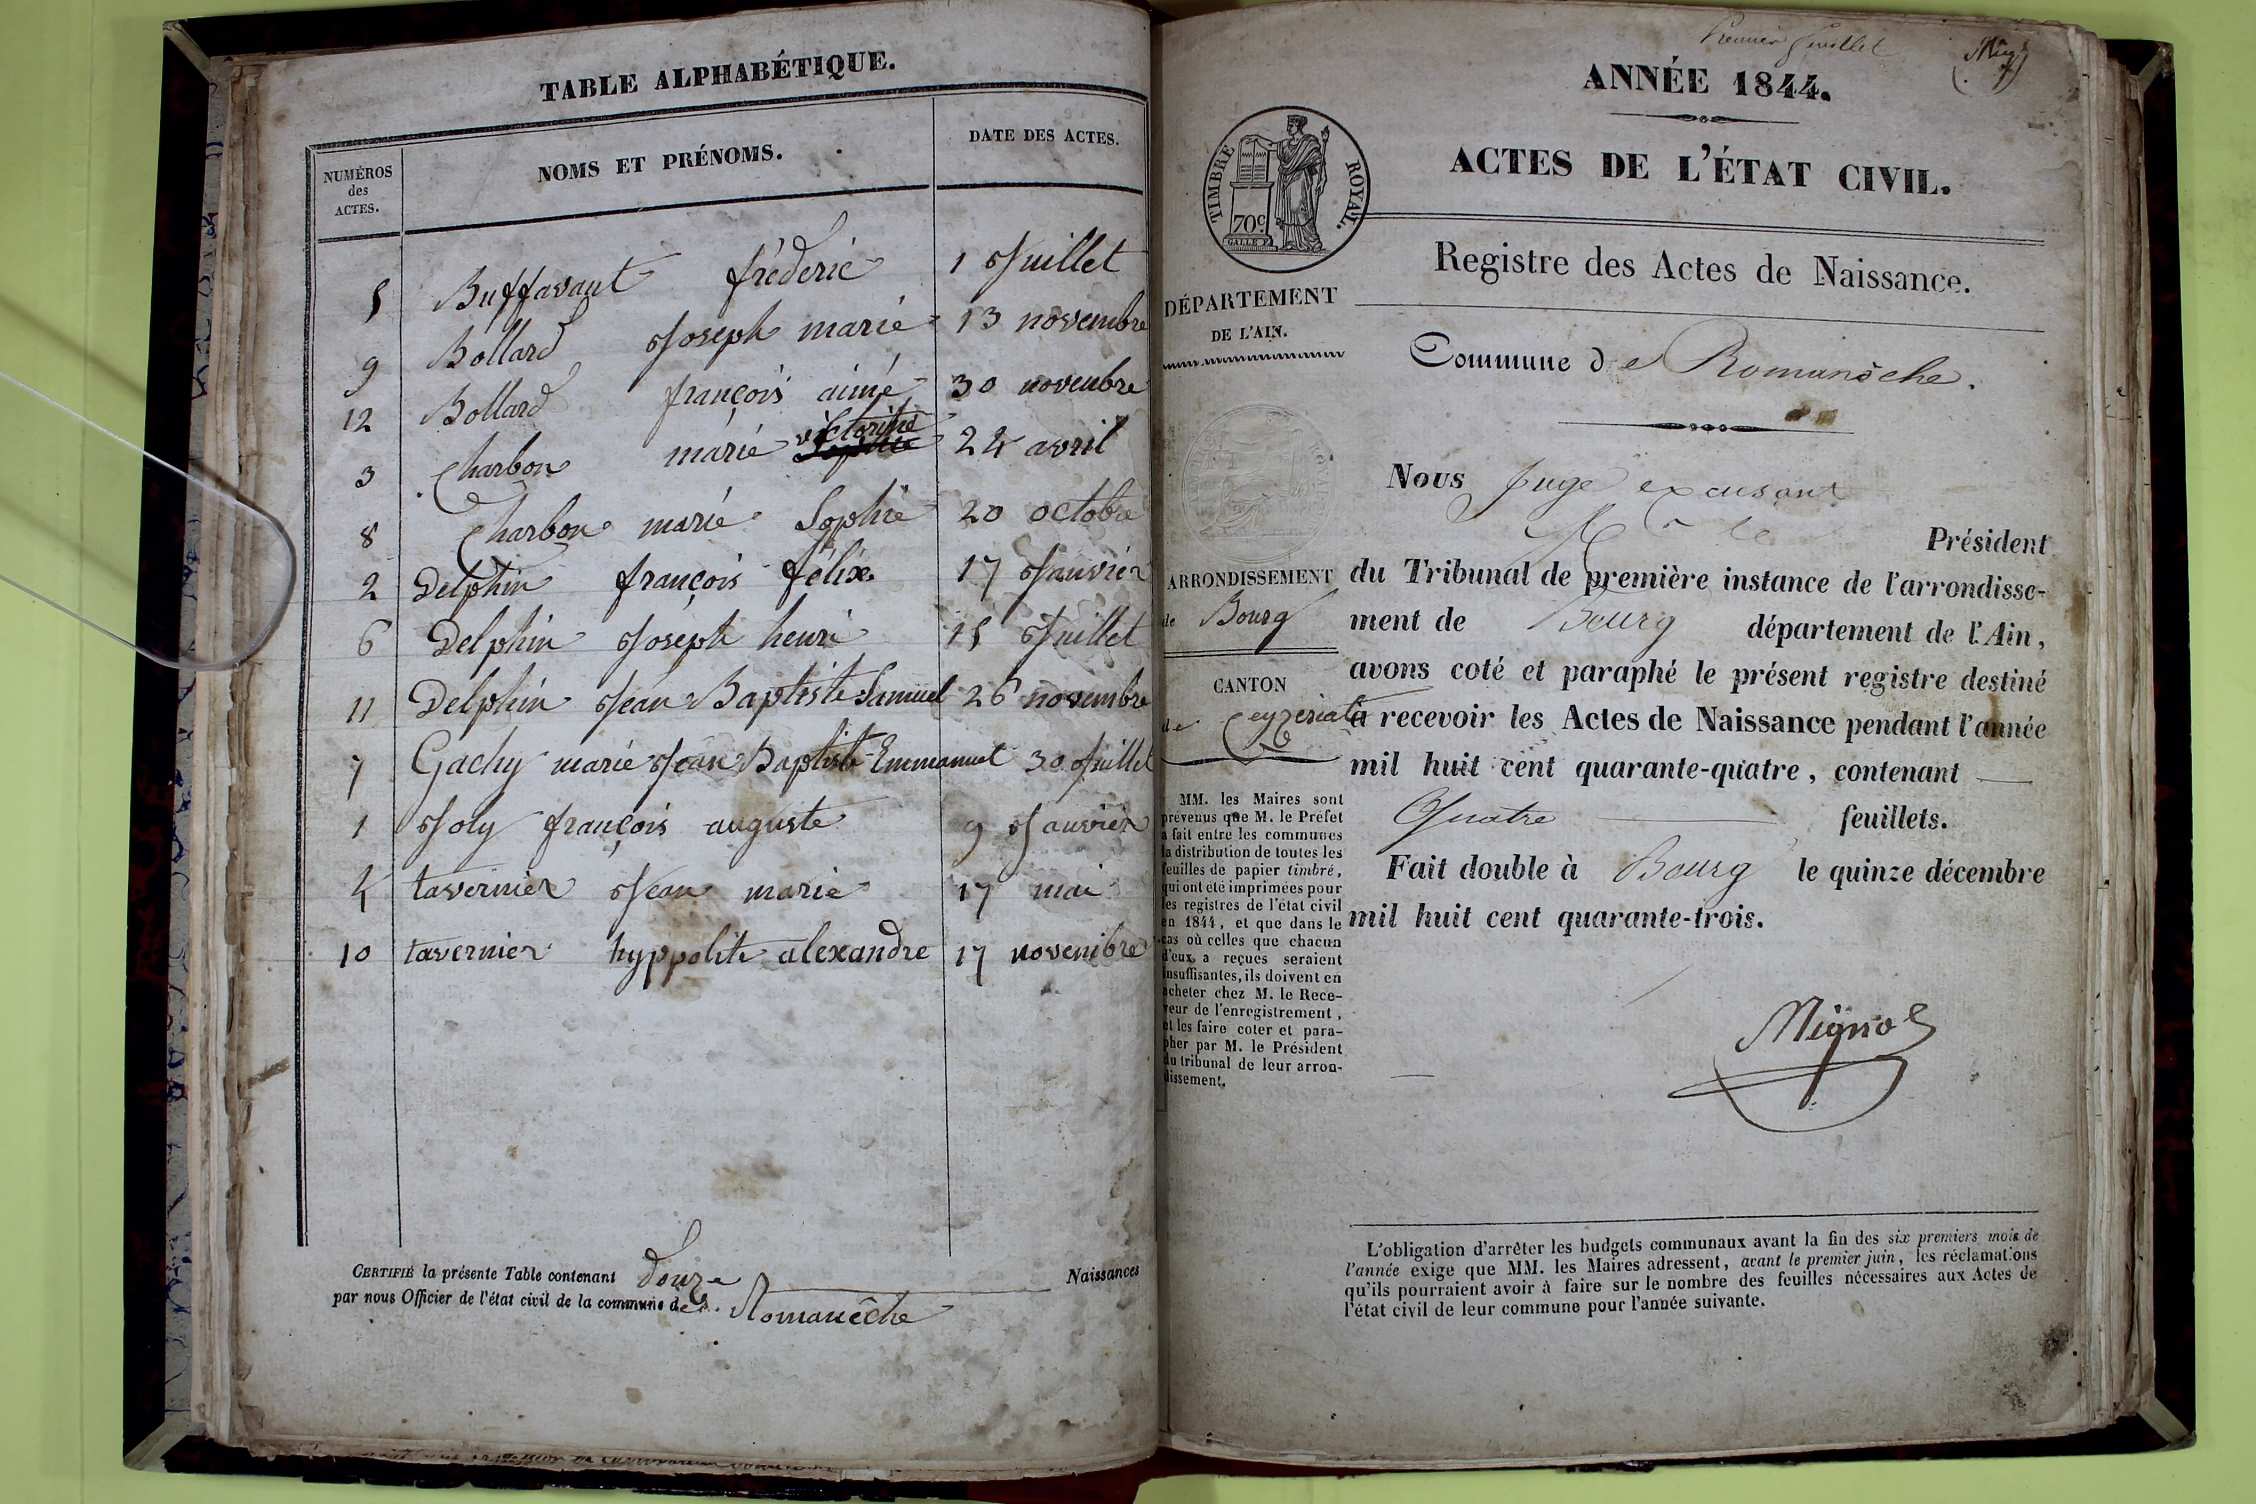 TABLE ALPHABÉTIQUE.
NUMÉROS
des
ACTES.
NOMS ET PRÉNOMS.
DATE DES ACTES.
5 Buffavant frédéric 1 Juillet
9 Bollard Joseph marie 13 novembre
12 Bollard françois aimé 30 novembre
3 Charbon marie victorine 24 avril
8 Charbon marie Sophie 20 octobre
2 Delphin françois félix 17 Janvier
6 Delphin Joseph henri 15 Juillet
11 Delphin Jean Baptiste Samuel 26 novembre
7 Gachy marie Jean Baptiste Emmanuel 30 Juillet
1 Joly françois auguste 9 Janvier
4 tavernier Jean marie 17 mai
10 tavernier hyppolite alexandre 17 novembre
CERTIFIÉ la présente Table contenant douze Naissances
par nous Officier de l'état civil de la commune de Romanêche
Premier feuillet
ANNÉE 1844.
ACTES DE L'ÉTAT CIVIL.
TIMBRE ROYAL.
70c
Registre des Actes de Naissance.
DÉPARTEMENT
DE L'AIN.
Commune de Romanèche.
ARRONDISSEMENT
de Bourg
CANTON
de Ceyzériat
MM. les Maires sont
prévenus que M. le Préfet
a fait entre les communes
la distribution de toutes les
feuilles de papier timbré,
qui ont été imprimées pour
les registres de l'état civil
en 1844, et que dans le
cas où celles que chacun
d'eux a reçues seraient
insuffisantes, ils doivent en
acheter chez M. le Rece-
veur de l'enregistrement,
et les faire coter et para-
pher par M. le Président
du tribunal de leur arron-
dissement.
Nous Juge excusant
Mr le Président
du Tribunal de première instance de l'arrondisse-
ment de Bourg département de l'Ain,
avons coté et paraphé le présent registre destiné
à recevoir les Actes de Naissance pendant l'année
mil huit cent quarante-quatre, contenant
Quatre feuillets.
Fait double à Bourg le quinze décembre
mil huit cent quarante-trois.
L'obligation d'arrêter les budgets communaux avant la fin des six premiers mois de
l'année exige que MM. les Maires adressent, avant le premier juin, les réclamations
qu'ils pourraient avoir à faire sur le nombre des feuilles nécessaires aux Actes de
l'état civil de leur commune pour l'année suivante.